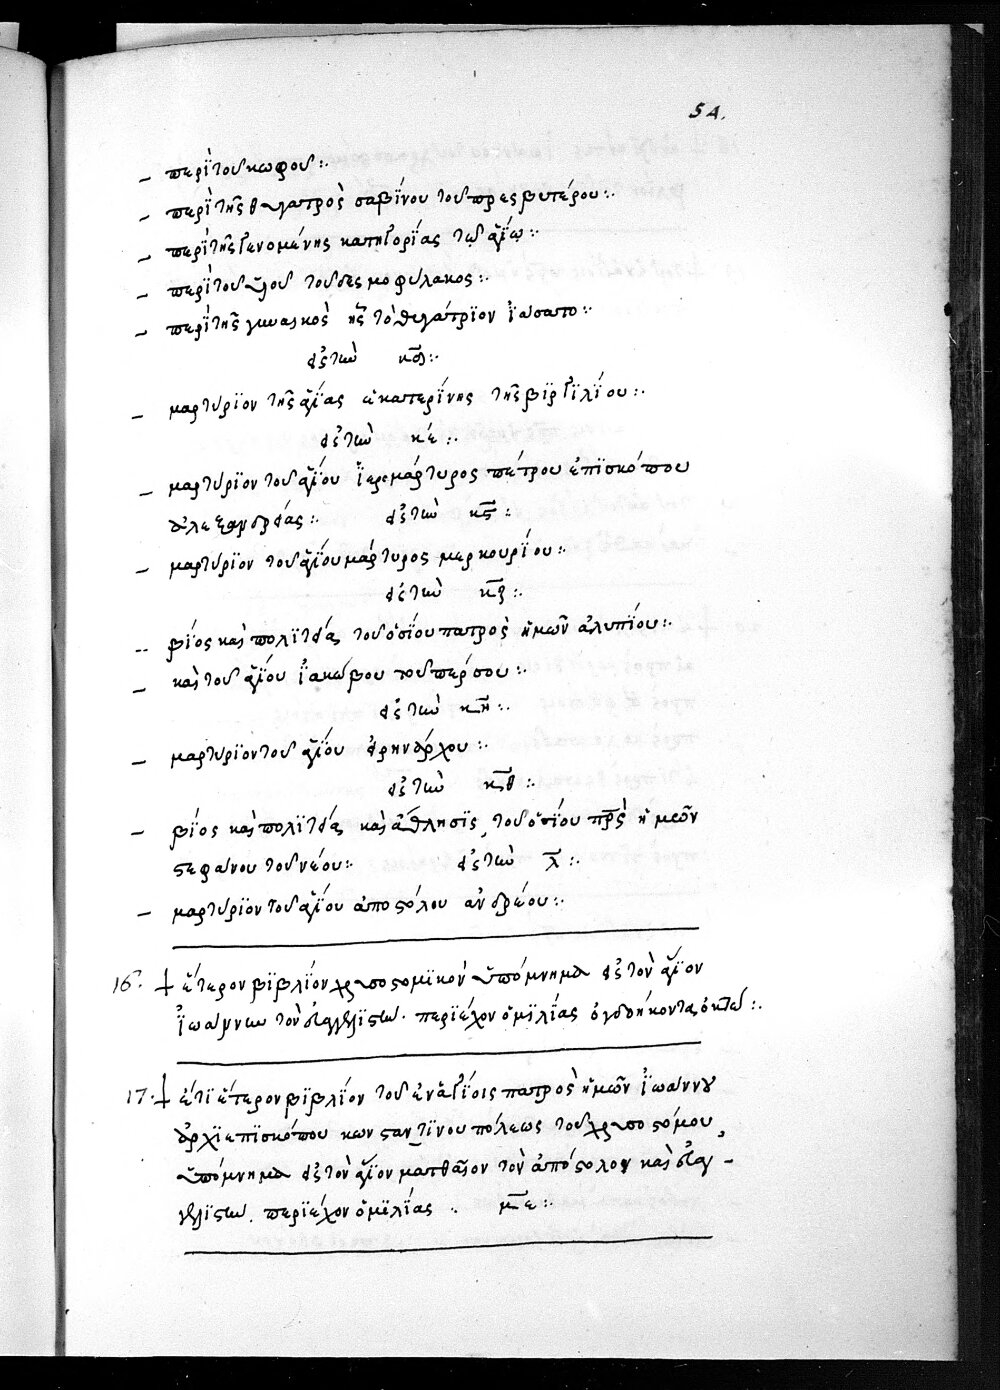 54.
– περὶ τοῦ κωφοῦ:·
– περὶ τῆς θυγατρὸς σαβΐνου τοῦ πρεσβυτέρου:·
– περὶ τῆς γενομένης κατηγορίας τῷ ἁγίῳ:·
– περὶ τοῦ υἱοῦ τοῦ δεσμοφύλακος:·
– περὶ τῆς γυναικὸς ἧς τὸ θυγάτριον ἰάσατο:·
εἰς τὼ κδ:·
– μαρτύριον τῆς ἁγίας ἐκατερίνης τῆς βϊργιλίου:·
εἰς τὼ κέ:·
– μαρτύριον τοῦ ἁγίου ἱερομάρτυρος πέτρου ἐπϊσκόπου
ἀλεξανδρείας:· εἰς τὼ κς:·
– μαρτύριον τοῦ ἁγίου μάρτυρος μερκουρίου:·
εἰς τὼ κζ:·
-- βίος καὶ πολϊτεία τοῦ ὁσίου πατρὸς ἡμῶν ἀλυπίου:·
– καὶ τοῦ ἁγίου ἰακώβου τοῦ πέρσου:·
εἰς τὼ κη:·
– μαρτύριον τοῦ ἁγίου εἰρηνάρχου:·
εἰς τὼ κθ:·
– βίος καὶ πολϊτεία καὶ ἄθλησϊς, τοῦ ὁσίου πρς ἡμῶν
στεφάνου τοῦ νέου:· εἰς τὼ λ:·
– μαρτύριον τοῦ ἁγίου ἀποστόλου ἀνδρέου:·
16. † ἕτερον βϊβλίον χρυσοστομϊκὸν ὑπόμνημα εἰς τὸν ἅγιον
ἰωάννην τὸν εὐαγγελϊστὴν. περϊέχον ὁμϊλίας ὀγδοήκοντα ὀκτώ:·
17. † ἔτϊ ἕτερον βϊβλίον τοῦ ἐν ἁγίοις πατρὸς ἡμῶν ἰωάννου
ἀρχϊεπϊσκόπου κωνσταντϊνουπόλεως τοῦ χρυσοστόμου,
ὑπόμνημα εἰς τὸν ἅγιον ματθαῖον τὸν ἀπόστολον καὶ εὐαγ–
γελϊστὴν. περϊέχον ὁμϊλίας . με:·